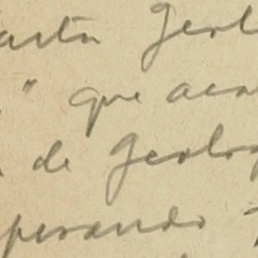 arta Geol
" que aca
de Geolog
perando